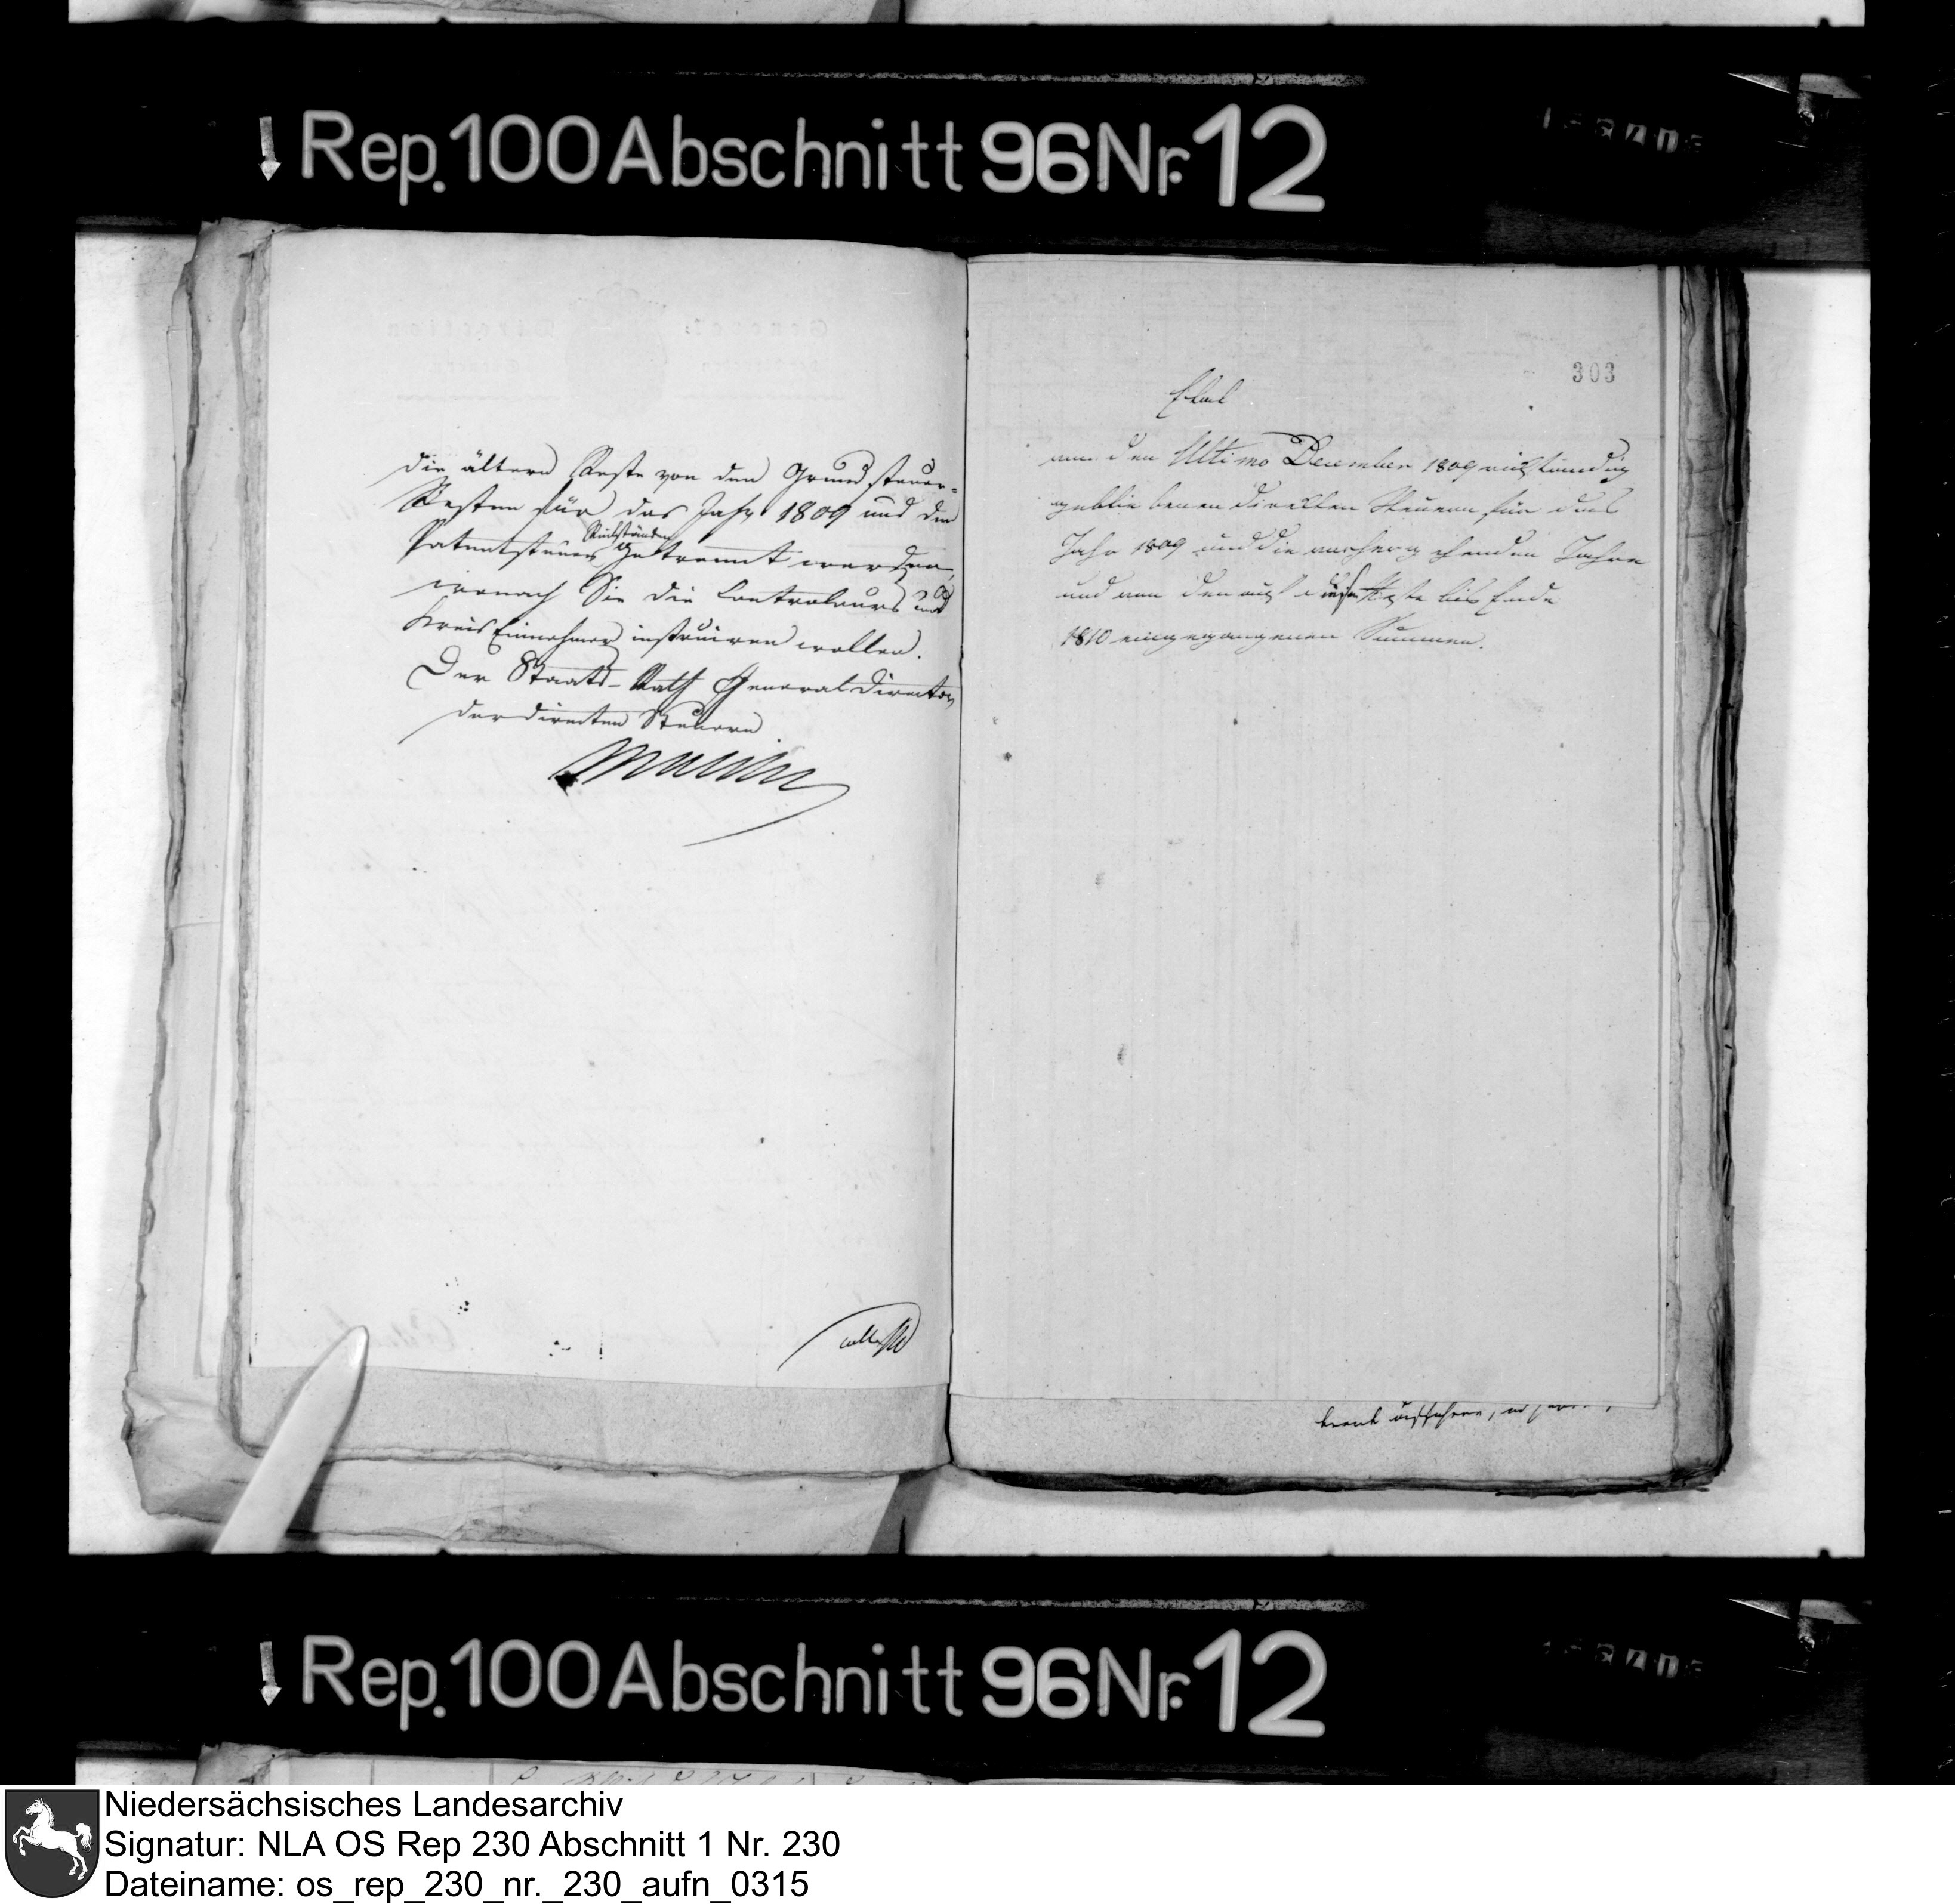 Rep. 100 Abschnitt 96 Nr. 12
die ältern Reste von den Grundsteuer-
Resten für das Jahr 1809 und den
Rückständen
Patentsteuer getrennt werden,
wonach Sie die Controleurs und
Kreis Einnehmer instruiren wollen.
Der Staats-Rath General Director
der directen Steuern
303
Etat
von den Ultimo December 1809 rückständig
gebliebenen directen Steuern für das
Jahr 1809 und die vorhergehenden Jahre
und von den auf diese Reste bis Ende
1810 eingegangenen Summen.
Rep. 100 Abschnitt 96 Nr. 12
Niedersächsisches Landesarchiv
Signatur: NLA OS Rep 230 Abschnitt 1 Nr. 230
Dateiname: os_rep_230_nr._230_aufn_0315